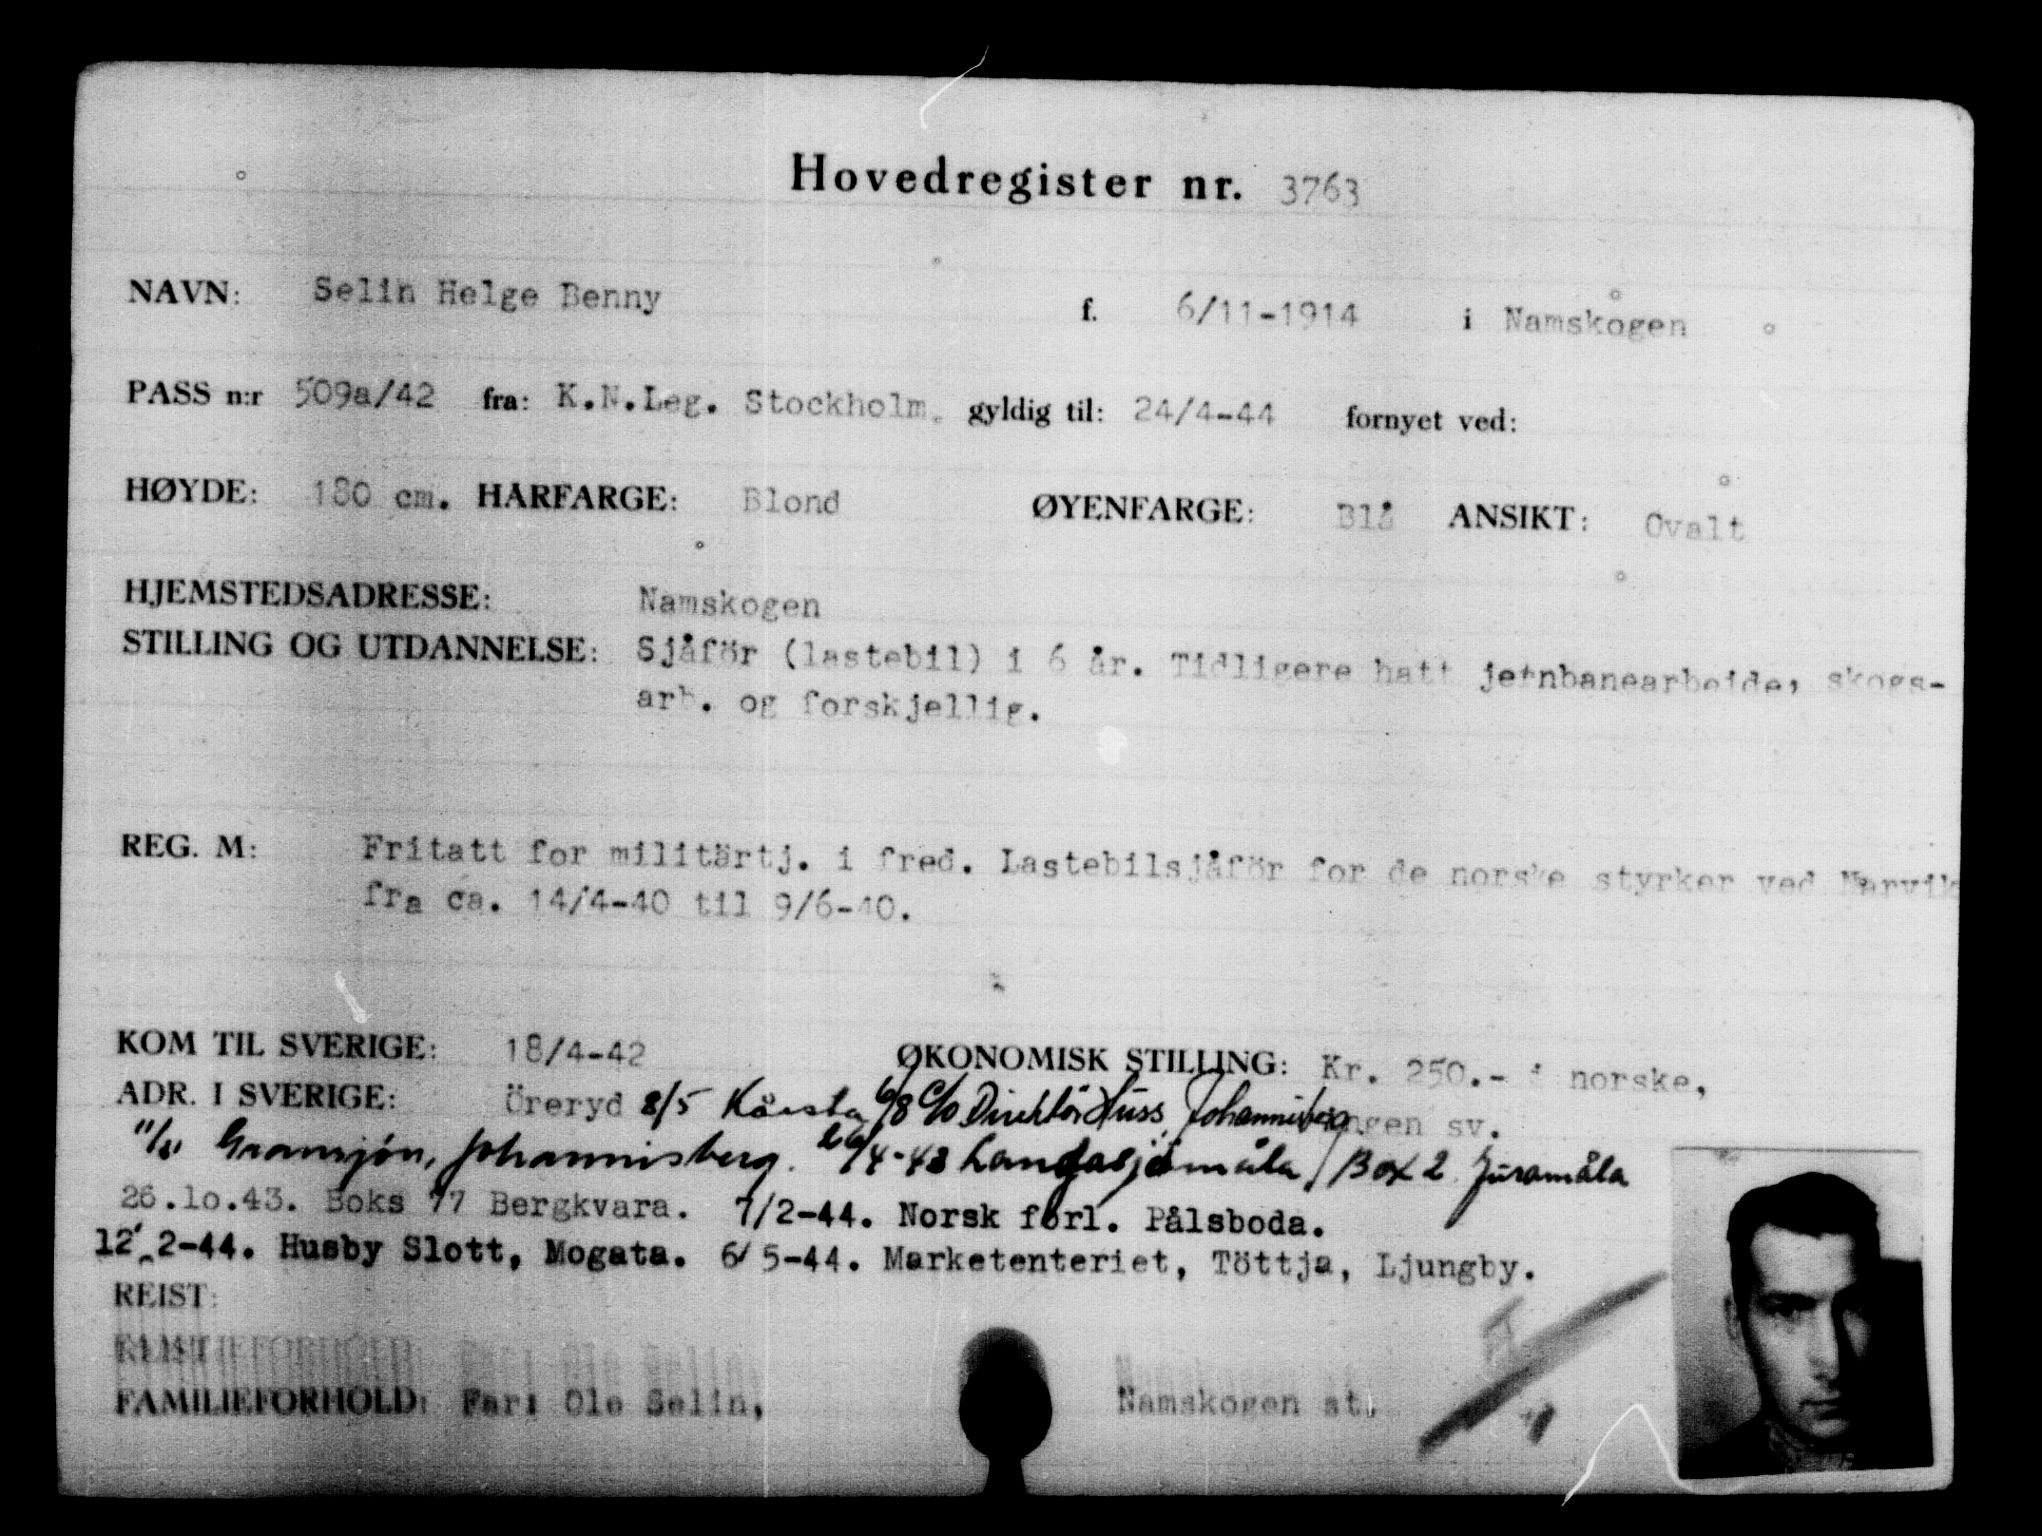 Hovedregister nr. 3763
NAVN: Selin Helge Benny f. 6/11-1914 i Namskogen
PASS n:r 509a/42 fra: K.N.Leg. Stockholm. gyldig til: 24/4-44 fornyet ved:
HØYDE: 180 cm. HÅRFARGE: Blond ØYENFARGE: Blå ANSIKT: Ovalt
HJEMSTEDSADRESSE: Namskogen
STILLING OG UTDANNELSE: Sjåför (lastebil) i 6 år. Tidligere hatt jernbanearbeide, skogs-
arb. og forskjellig.
REG. M: Fritatt for militärtj. i fred. Lastebilsjåför for de norske styrker ved Narvik
fra ca. 14/4-40 til 9/6-40.
KOM TIL SVERIGE: 18/4-42 ØKONOMISK STILLING: Kr. 250.- i norske,
ADR. I SVERIGE: Öreryd 8/5 Kärsta 6/8 c/o Direktör Huss, Johannisberg ingen sv.
Gransjön, Johannisberg. 26/4-43 Langasjömåla, Box 2 Juramåla
26.10.43. Boks 77 Bergkvara. 7/2-44. Norsk forl. Pålsboda.
12.2-44. Husby Slott, Mogata. 6/5-44. Marketenteriet, Töttja, Ljungby.
REIST:
FAMILIEFORHOLD: Far: Ole Selin, Namskogen st.